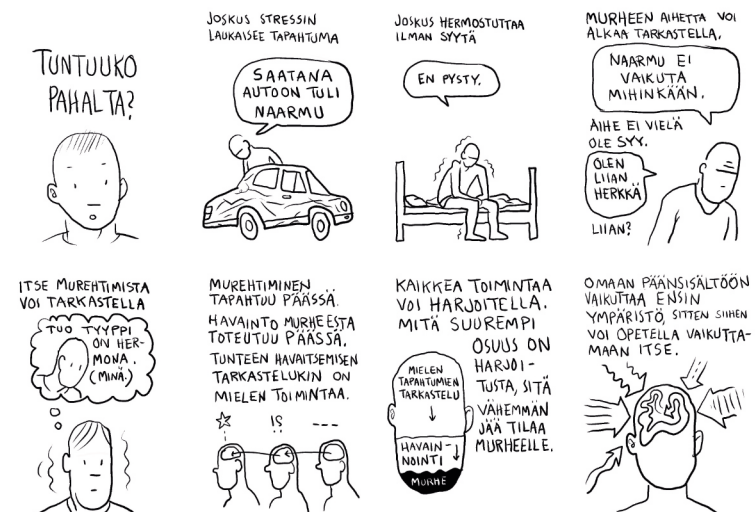 TUNTUUKO
PAHALTA?
JOSKUS STRESSIN
LAUKAISEE TAPAHTUMA
SAATANA
AUTOON TULI
NAARMU
JOSKUS HERMOSTUTTAA
ILMAN SYYTÄ
EN PYSTY.
MURHEEN AIHETTA VOI
ALKAA TARKASTELLA.
NAARMU EI
VAIKUTA
MIHINKÄÄN.
AIHE EI VIELÄ
OLE SYY.
OLEN
LIIAN
HERKKÄ
LIIAN?
ITSE MUREHTIMISTA
VOI TARKASTELLA
TUO TYYPPI
ON HER-
MONA.
(MINÄ.)
MUREHTIMINEN
TAPAHTUU PÄÄSSÄ.
HAVAINTO MURHEESTA
TOTEUTUU PÄÄSSÄ.
TUNTEEN HAVAITSEMISEN
TARKASTELUKIN ON
MIELEN TOIMINTAA.
!?
---
KAIKKEA TOIMINTAA
VOI HARJOITELLA.
MITÄ SUUREMPI
OSUUS ON
HARJOI-
TUSTA, SITÄ
VÄHEMMÄN
JÄÄ TILAA
MURHEELLE.
MIELEN
TAPAHTUMIEN
TARKASTELU
HAVAIN-
NOINTI
MURHE
OMAAN PÄÄNSISÄLTÖÖN
VAIKUTTAA ENSIN
YMPÄRISTÖ, SITTEN SIIHEN
VOI OPETELLA VAIKUTTA-
MAAN ITSE.